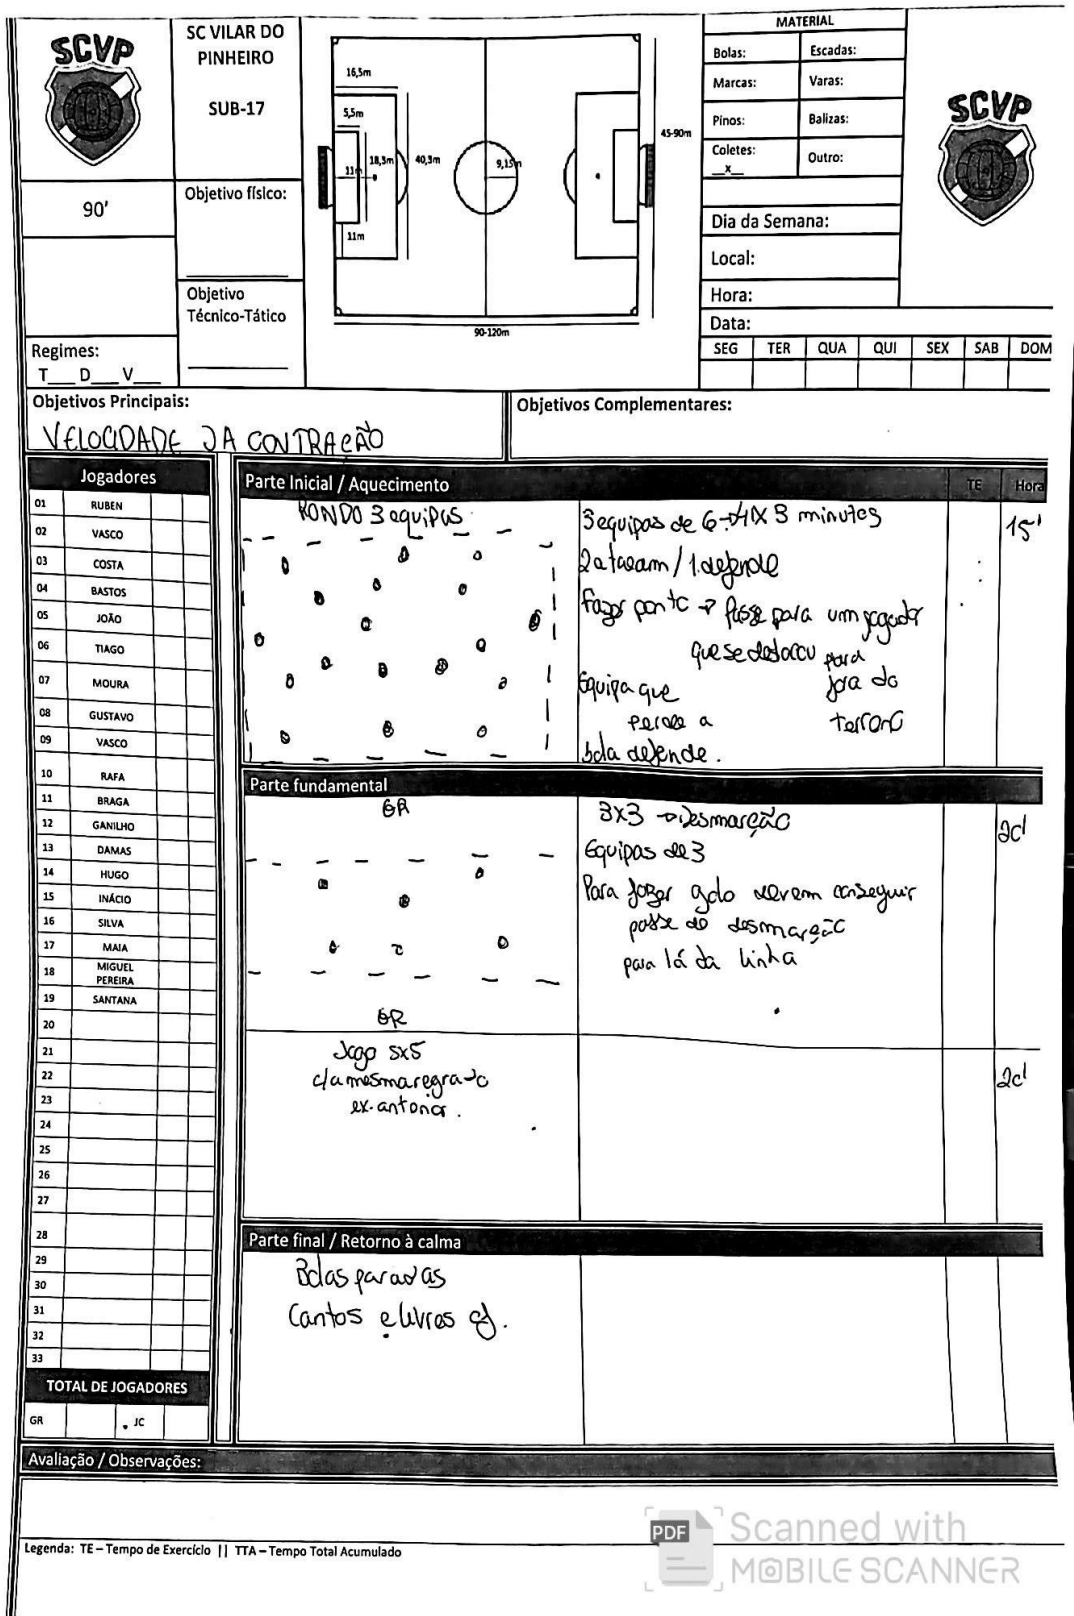 SCVP
SC VILAR DO
PINHEIRO
SUB-17
90'
Objetivo físico:
Objetivo
Técnico-Tático
Regimes:
T___ D___ V___
16,5m
5,5m
11m
18,3m
40,3m
9,15m
11m
45-90m
90-120m
MATERIAL
Bolas:
Escadas:
Marcas:
Varas:
Pinos:
Balizas:
Coletes:
__x__
Outro:
SCVP
Dia da Semana:
Local:
Hora:
Data:
SEG TER QUA QUI SEX SAB DOM
Objetivos Principais:
VELOCIDADE DA CONTRAÇÃO
Objetivos Complementares:
Jogadores
01 RUBEN
02 VASCO
03 COSTA
04 BASTOS
05 JOÃO
06 TIAGO
07 MOURA
08 GUSTAVO
09 VASCO
10 RAFA
11 BRAGA
12 GANILHO
13 DAMAS
14 HUGO
15 INÁCIO
16 SILVA
17 MAIA
18 MIGUEL
PEREIRA
19 SANTANA
20
21
22
23
24
25
26
27
28
29
30
31
32
33
TOTAL DE JOGADORES
GR JC
Parte Inicial / Aquecimento TE Hora
RONDO 3 equipas
3 equipas de 6 → 4X 3 minutos
15'
2 atacam / 1 defende
Fazer ponto → Passe para um jogador
que se deslocou para
fora do
terreno
Equipa que
perde a
bola defende.
Parte fundamental
GR
GR
3x3 → Desmarcação
20'
Equipas de 3
Para fazer golo devem conseguir
passe de desmarcação
para lá da linha
Jogo 5x5
c/a mesma regra do
ex. anterior.
20'
Parte final / Retorno à calma
Bolas paradas
Cantos e livres
Avaliação / Observações:
Legenda: TE – Tempo de Exercício || TTA – Tempo Total Acumulado
PDF
Scanned with
MOBILE SCANNER